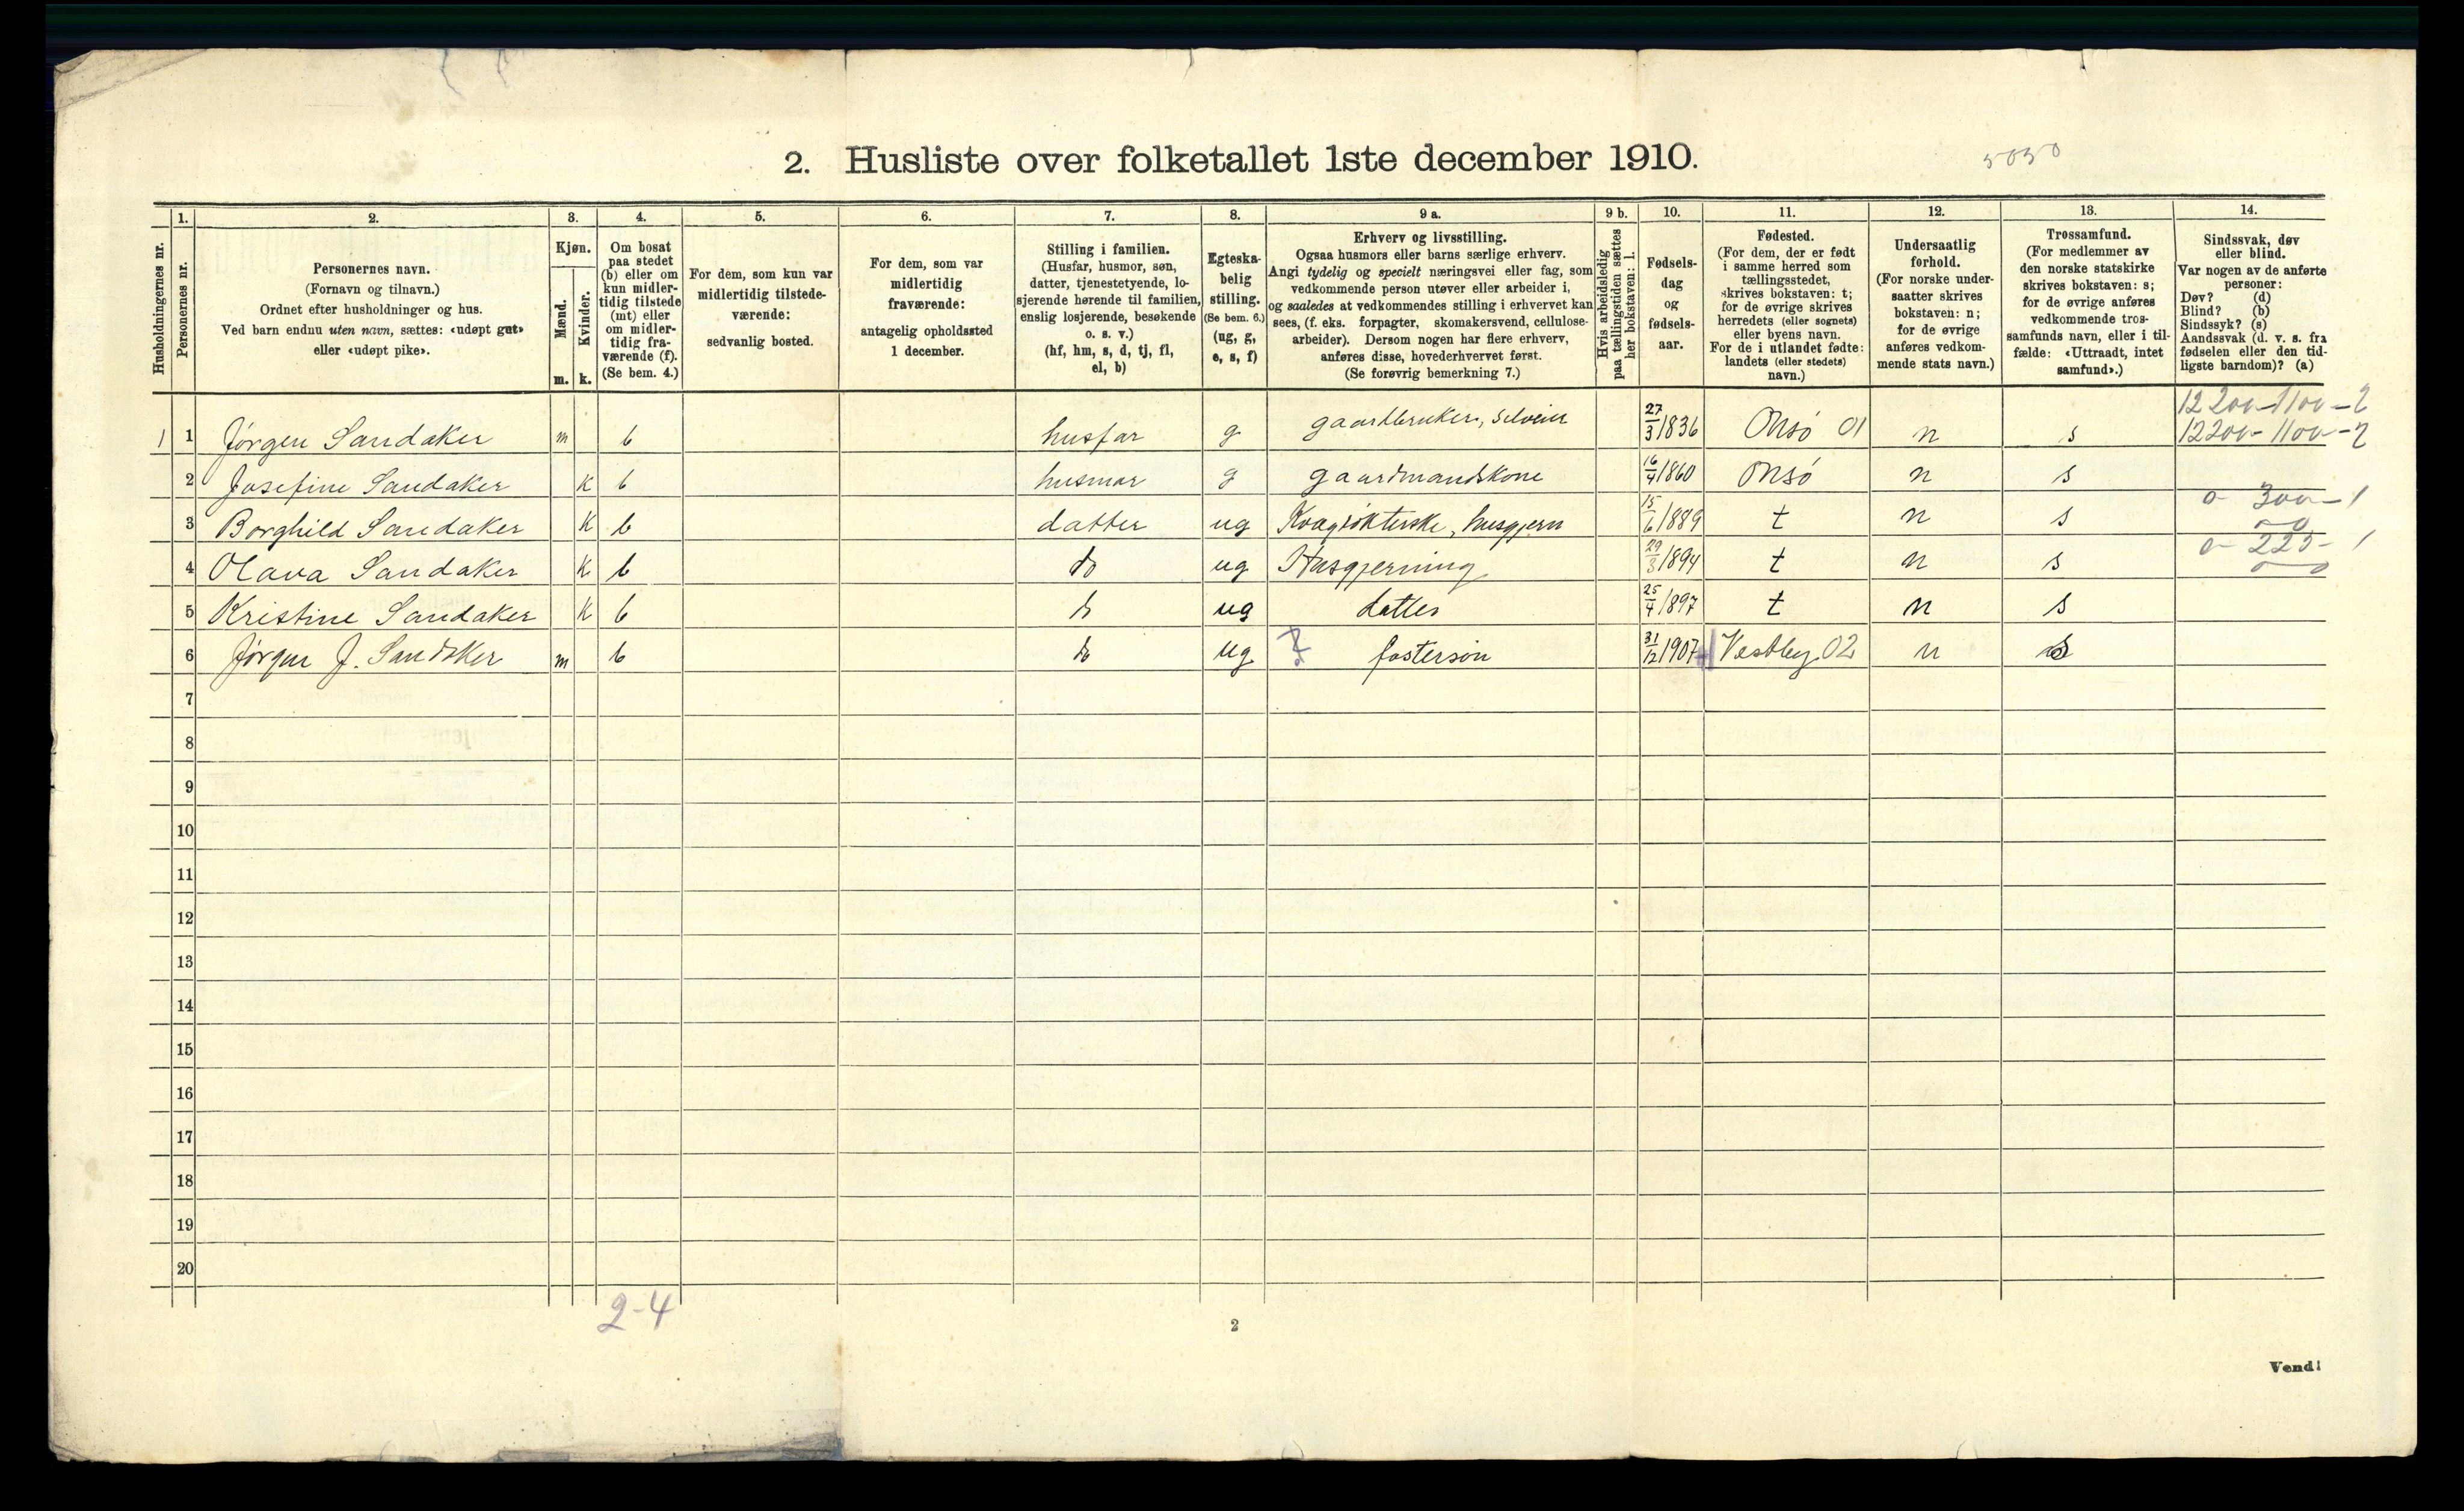 2. Husliste over folketallet 1ste december 1910.
5050
Husholdningernes nr.
1.
Personernes nr.
2.
Personernes navn.
(Fornavn og tilnavn.)
Ordnet efter husholdninger og hus.
Ved barn endnu uten navn, sættes: «udøpt gut»
eller «udøpt pike».
3.
Kjøn.
Mænd.
Kvinder.
m.
k.
4.
Om bosat
paa stedet
(b) eller om
kun midler-
tidig tilstede
(mt) eller
om midler-
tidig fra-
værende (f).
(Se bem. 4.)
5.
For dem, som kun var
midlertidig tilstede-
værende:
sedvanlig bosted.
6.
For dem, som var
midlertidig
fraværende:
antagelig opholdssted
1 december.
7.
Stilling i familien.
(Husfar, husmor, søn,
datter, tjenestetyende, lo-
sjerende hørende til familien,
enslig losjerende, besøkende
o. s. v.)
(hf, hm, s, d, tj, fl,
el, b)
8.
Egteska-
belig
stilling.
(Se bem. 6.)
(ug, g,
e, s, f)
9 a.
Erhverv og livsstilling.
Ogsaa husmors eller barns særlige erhverv.
Angi tydelig og specielt næringsvei eller fag, som
vedkommende person utøver eller arbeider i,
og saaledes at vedkommendes stilling i erhvervet kan
sees, (f. eks. forpagter, skomakersvend, cellulose-
arbeider). Dersom nogen har flere erhverv,
anføres disse, hovederhvervet først.
(Se forøvrig bemerkning 7.)
9 b.
Hvis arbeidsledig
paa tællingstiden sættes
her bokstaven: l.
10.
Fødsels-
dag
og
fødsels-
aar.
11.
Fødested.
(For dem, der er født
i samme herred som
tællingsstedet,
skrives bokstaven: t;
for de øvrige skrives
herredets (eller sognets)
eller byens navn.
For de i utlandet fødte:
landets (eller stedets)
navn.)
12.
Undersaatlig
forhold.
(For norske under-
saatter skrives
bokstaven: n;
for de øvrige
anføres vedkom-
mende stats navn.)
13.
Trossamfund.
(For medlemmer av
den norske statskirke
skrives bokstaven: s;
for de øvrige anføres
vedkommende tros-
samfunds navn, eller i til-
fælde: «Uttraadt, intet
samfund».)
14.
Sindssvak, døv
eller blind.
Var nogen av de anførte
personer:
Døv? (d)
Blind? (b)
Sindssyk? (s)
Aandssvak (d. v. s. fra
fødselen eller den tid-
ligste barndom)? (a)
12200-1100-2
1 1 Jørgen Sandaker m b husfar g gaardbruker, selveier 27/3 1836 Onsø 01 n s 12200-1100-2
2 Josefine Sandaker k b husmor g gaardmandskone 16/4 1860 Onsø n s
3 Borghild Sandaker k b datter ug Kvægrøkterske, husgjern 15/6 1889 t n s 0-300-1
4 Olava Sandaker k b do ug Husgjerning 29/3 1894 t n s 0-225-1
5 Kristine Sandaker k b do ug datter 25/4 1897 t n s
6 Jørgen J. Sandaker m b do ug fostersøn 31/12 1907 Vestby 02 n s
7
8
9
10
11
12
13
14
15
16
17
18
19
20
2-4
2
Vend!